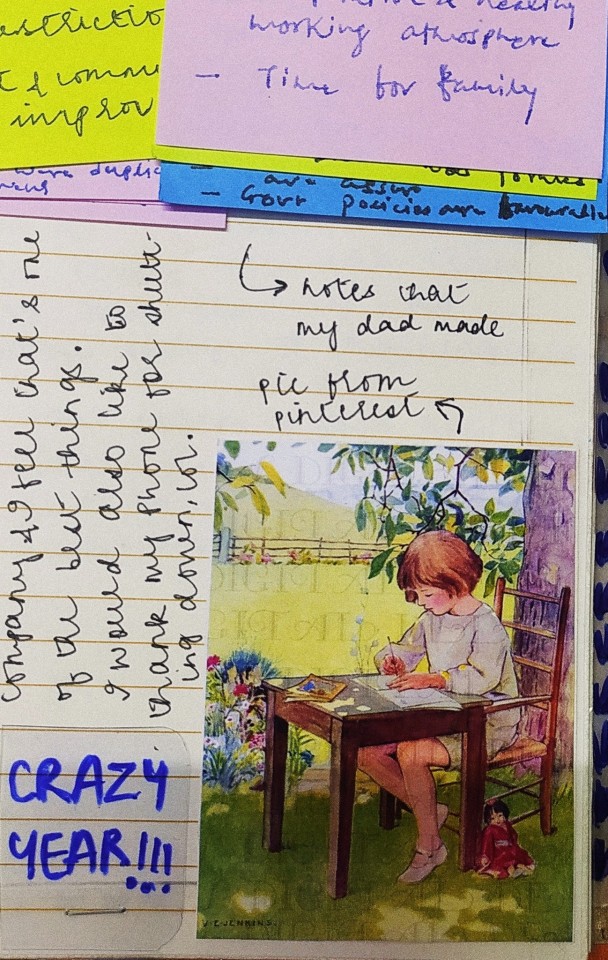 & commu
improv
& healthy
working atmosphere
- Time for family
were duplic
are assur
- Govt policies are favourable
notes that
my dad made
pic from
pinterest
company & I feel that's one
of the best things.
I would also like to
thank my phone for shutt-
ing down, lol.
CRAZY
YEAR!!!